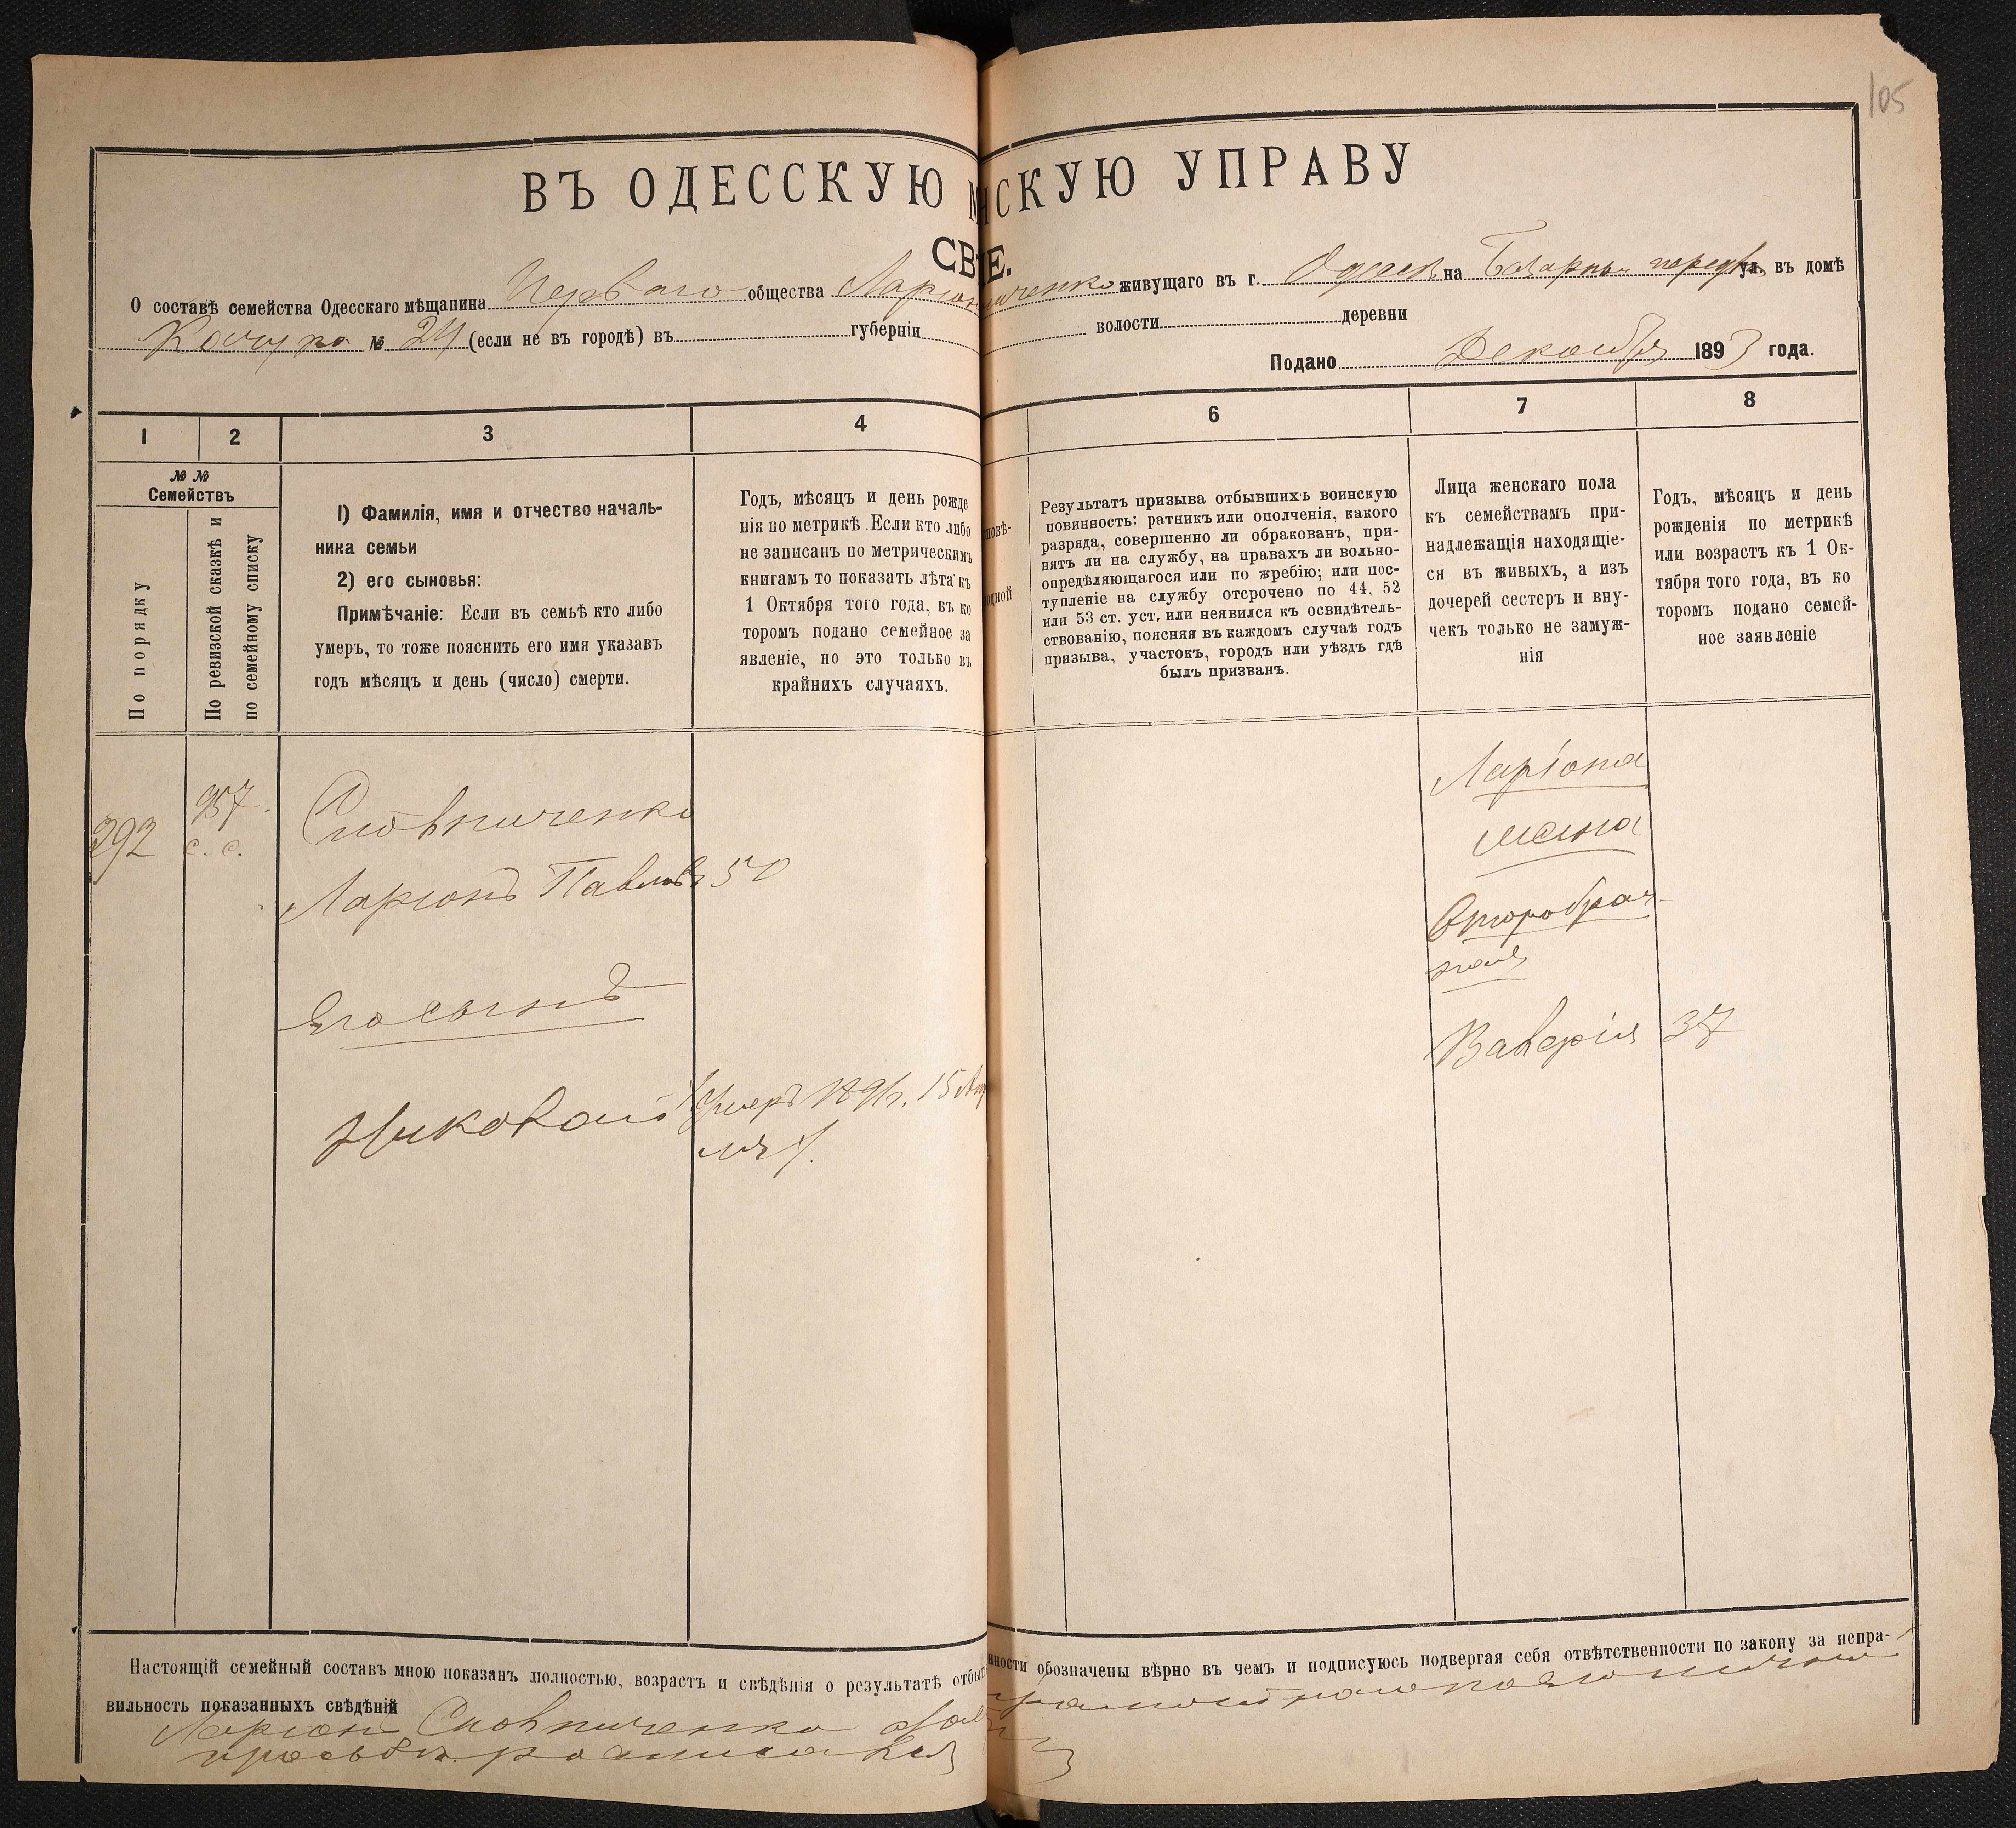 105
ВЪ ОДЕССКУЮ М НСКУЮ УПРАВУ
СВ ІЕ.
О составѣ семейства Одесскаго мѣщанина Перваго общества живущаго въ г. Одессѣ на Базарный ул. въ домѣ
№ 24 (если не въ городѣ) въ губерніи волости деревни
Подано Декабря 1893 года.
1 2 3 4 6 7 8
№ №
Семействъ
По порядку
По ревизской сказкѣ и
по семейному списку
1) Фамилія, имя и отчество началь-
ника семьи
2) его сыновья:
Примѣчаніе: Если въ семьѣ кто либо
умеръ, то тоже пояснить его имя указавъ
годъ мѣсяцъ и день (число) смерти.
Годъ, мѣсяцъ и день рожде
нія по метрикѣ. Если кто либо
не записанъ по метрическимъ
книгамъ то показать лѣта къ
1 Октября того года, въ ко
торомъ подано семейное за
явленіе, но это только въ
крайнихъ случаяхъ.
повѣ-
одной
Результатъ призыва отбывшихъ воинскую
повинность: ратникъ или ополченія, какого
разряда, совершенно ли обракованъ, при-
нятъ ли на службу, на правахъ ли вольно-
опредѣляющагося или по жребію; или пос-
тупленіе на службу отсрочено по 44, 52
или 53 ст. уст, или неявился къ освидѣтель-
ствованію, поясняя въ каждомъ случаѣ годъ
призыва, участокъ, городъ или уѣздъ гдѣ
былъ призванъ.
Лица женскаго пола
къ семействамъ при-
надлежащія находящіе-
ся въ живыхъ, а изъ
дочерей сестеръ и вну-
чекъ только не замуж-
нія
Годъ, мѣсяцъ и день
рожденія по метрикѣ
или возрастъ къ 1 Ок-
тября того года, въ ко
торомъ подано семей-
ное заявленіе
292
957.
с. с.
Ларіонъ Павловъ 50
Его сынъ
Николай Умеръ 1891г. 15 Ап
ля
Ларіона
жена
Второбрач-
ная
Валерія 37
Настоящій семейный составъ мною показанъ полностью, возрастъ и свѣдѣнія о результатѣ отбы нности обозначены вѣрно въ чемъ и подписуюсь подвергая себя отвѣтственности по закону за непра-
вильность показанныхъ свѣдѣній
Ларіонъ
просьбѣ росписался